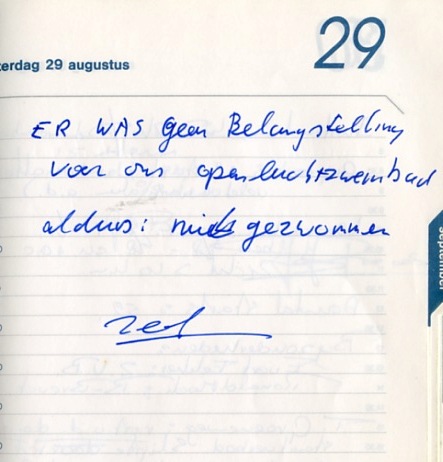 29
zerdag 29 augustus
ER WAS Geen Belangstelling
voor ons openluchtzwembad
aldus: niet gezwommen
september